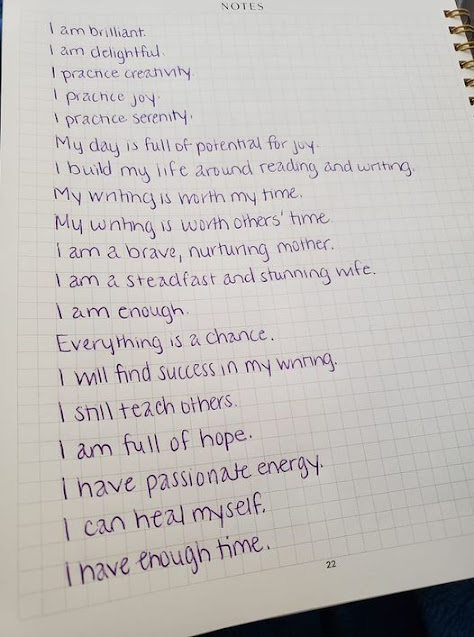 NOTES
I am brilliant.
I am delightful.
I practice creativity.
I practice joy.
I practice serenity.
My day is full of potential for joy.
I build my life around reading and writing.
My writing is worth my time.
My writing is worth others' time.
I am a brave, nurturing mother.
I am a steadfast and stunning wife.
I am enough.
Everything is a chance.
I will find success in my writing.
I still teach others.
I am full of hope.
I have passionate energy.
I can heal myself.
I have enough time.
22